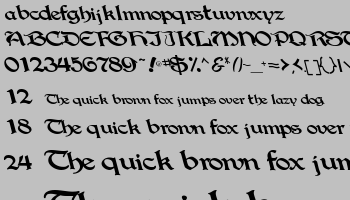 abcdefghijklmnopqrstuvwxyz
ABCDEFGHIJKLMNOPQRST
0123456789~!@#$%^&*()-_+=><[]{}
12 The quick brown fox jumps over the lazy dog
18 The quick brown fox jumps over
24 The quick brown fox jum